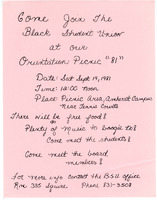 Come Join The
Black Student Union
at our
Orientation Picnic "81"
Date: Sat Sept 19, 1981
Time: 12:00 Noon
Place: Picnic Area, Amherst Campus
Near Tennis Courts
There will be free food &
Plenty of Music to boogie to &
Come meet the students &
Come meet the board
members &
For more info contact the BSU office
Rm 335 Squire Phone 831-3508